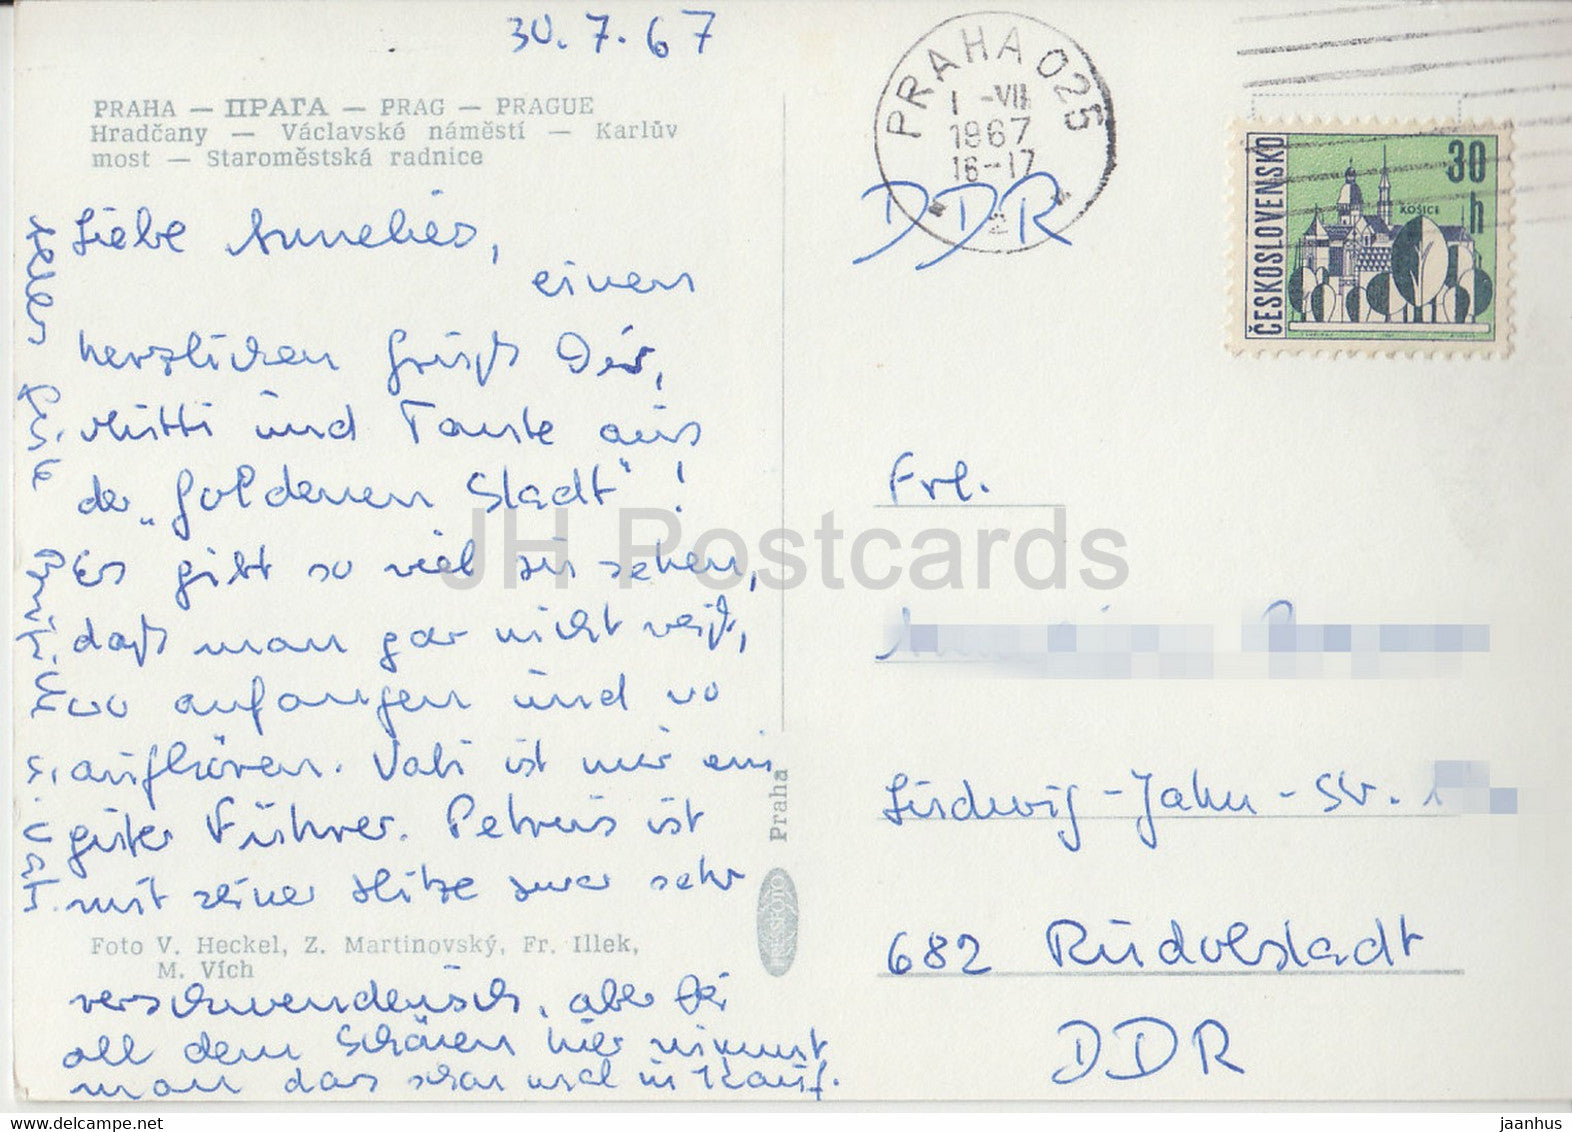 30.7.67
PRAHA — ПРАГА — PRAG — PRAGUE
Hradčany — Václavské náměstí — Karlův
most — Staroměstská radnice
Liebe Annelies,
einen
herzlichen Gruß Dir,
Mutti und Tante aus
der „Goldenen Stadt“!
Es gibt so viel zu sehen,
daß man gar nicht weiß,
wo anfangen und wo
aufhören. Vati ist mir ein
guter Führer. Petrus ist
mit seiner Hitze zwar sehr
Foto V. Heckel, Z. Martinovský, Fr. Illek,
M. Vích
verschwenderisch, aber bei
all dem Schönen hier nimmt
man das schon mal in Kauf.
Alles Gute
Praha
PRAHA 025
1 -VII
1967
16-17
2
DDR
ČESKOSLOVENSKO
30
h
KOŠICE
Frl.
Ludwig-Jahn-Str.
682 Rudolstadt
DDR
JH Postcards
delcampe.net
jaanhus